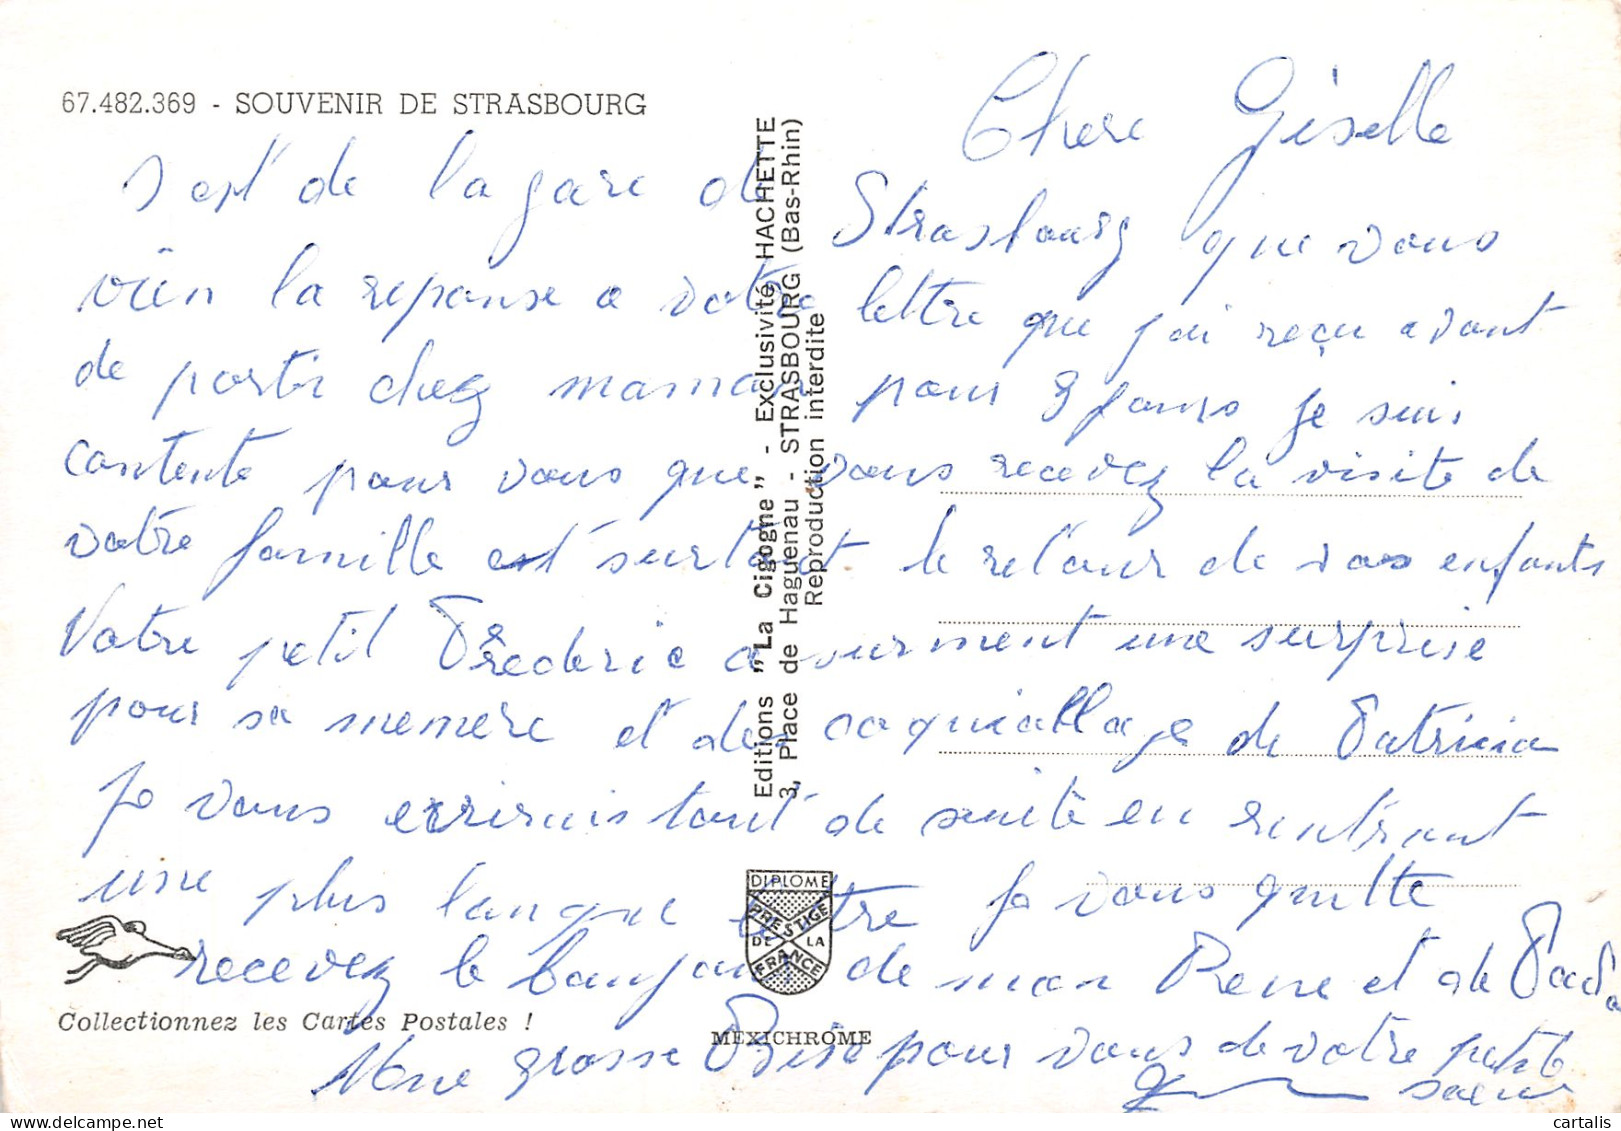 67.482.369 - SOUVENIR DE STRASBOURG
Chere Giselle
S est de la gare de Strasbourg que vous
vien la reponse a votre lettre que j'ai reçu avant
de partir chez maman pour 8 jours je suis
contente pour vous que vous recevez la visite de
votre famille est surtout le retour de vos enfants
Votre petit Frederic a surment une surprise
pour sa memere et des coquiallage de Patricia
Je vous ecrirais tout de suite en rentrant
une plus langue lettre Je vous quitte
recevez le bonjour de mon Rene et de
Une grosse Bise pour vous de votre petite
soeur
Editions "La Cigogne" - Exclusivité HACHETTE
3, Place de Haguenau - STRASBOURG (Bas-Rhin)
Reproduction interdite
DIPLOME
PRESTIGE
DE LA
FRANCE
Collectionnez les Cartes Postales !
MEXICHROME
cartalis